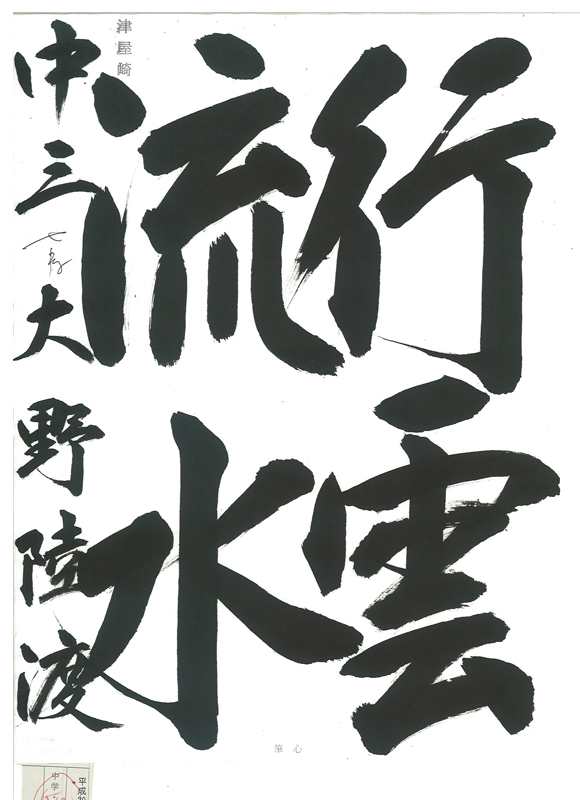 行雲
流水
津屋崎
中三 大野陸渡
筆心
平成
中学